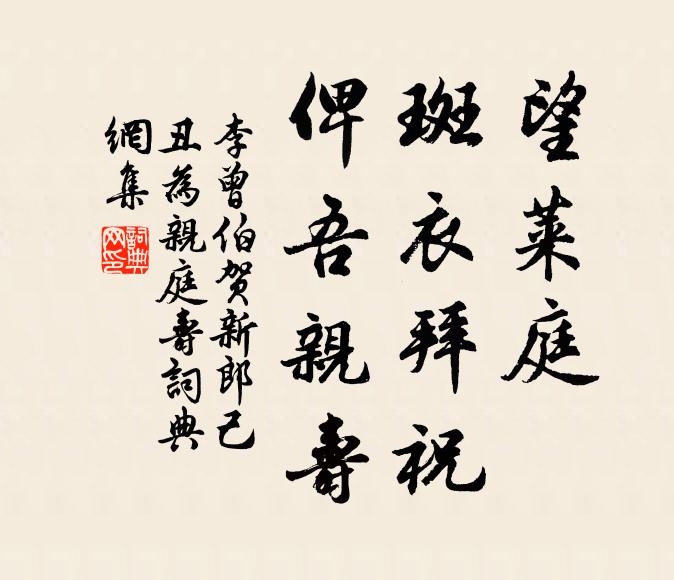 望莱庭
斑衣拜祝
俾吾親壽
李曾伯賀新郎己
丑為親庭壽詞典
網集
詞典
网印